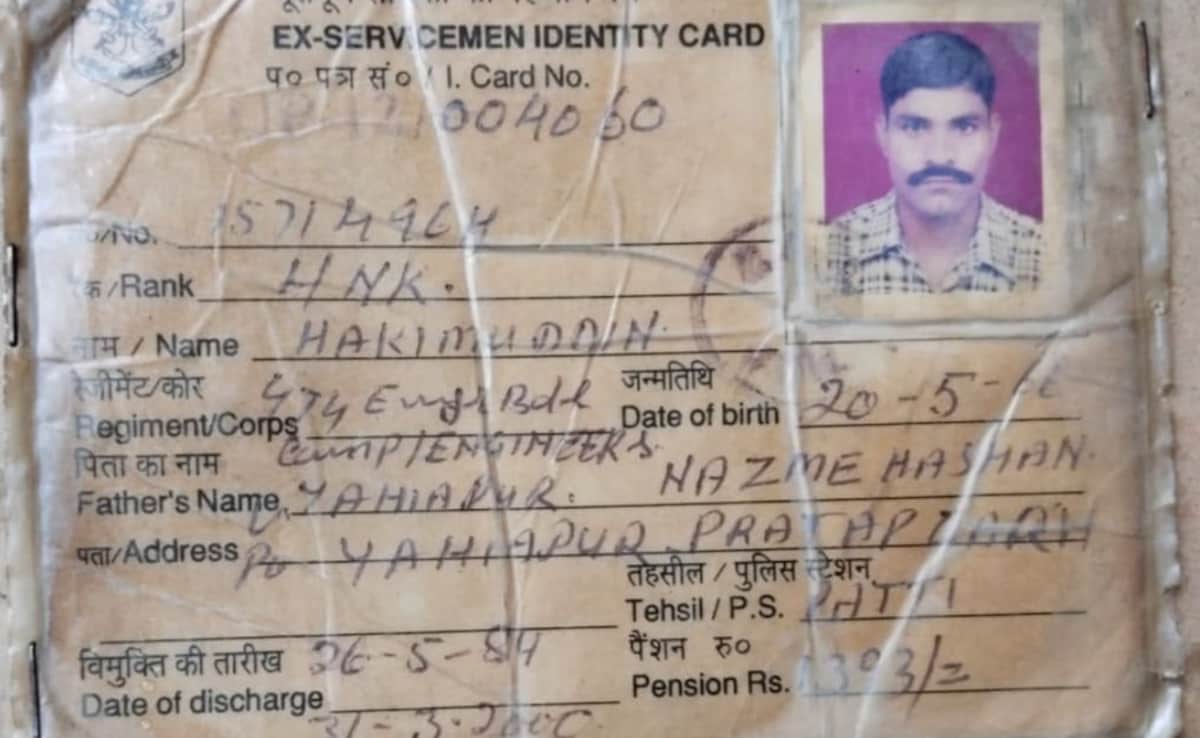 EX-SERVICEMEN IDENTITY CARD
प० पत्र सं० / I. Card No.
004060
सं०/No. 15714964
रैंक/Rank HNK.
नाम / Name HAKIMUDDIN.
रेजीमेंट/कोर 474 Engr
Regiment/Corps ENGINEERS.
जन्मतिथि
Date of birth 20-5-
पिता का नाम
Father's Name, YAHIAPUR. NAZME HASHAN.
पता/Address PO YAHIAPUR. PRATAPGARH
तेहसील / पुलिस स्टेशन
Tehsil / P.S. PATTI
विमुक्ति की तारीख 26-5-84
Date of discharge
31-3-2000
पैंशन रु०
Pension Rs. 1393/=